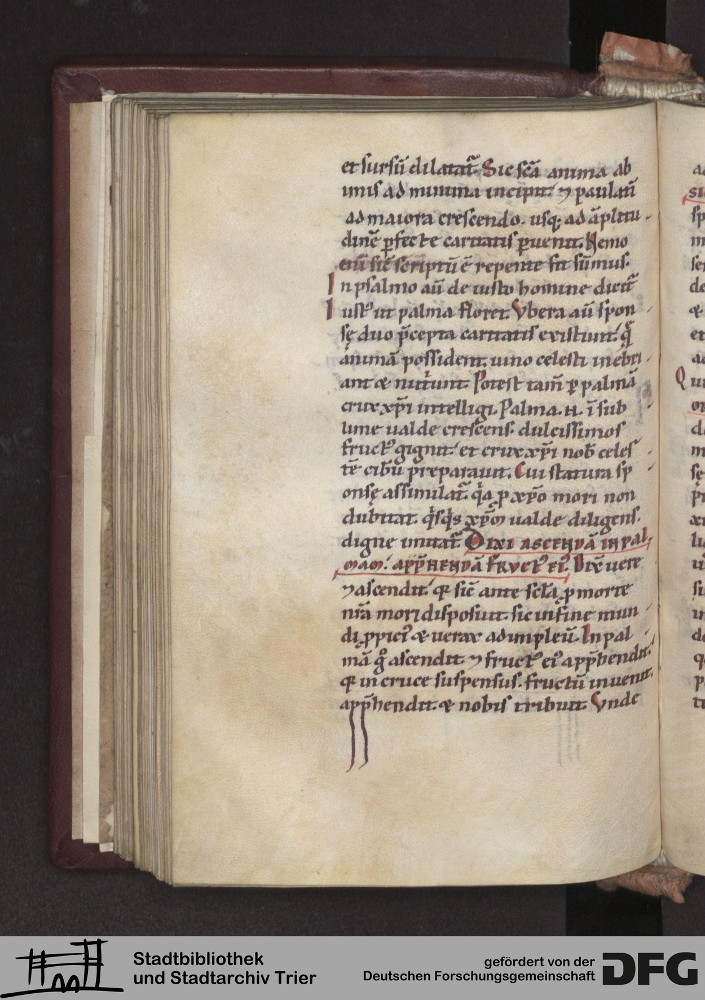 et sursū dilatat᷑. Sic sc̄a anima ab
imis ad minima incipit. ⁊ paulatī
ad maiora crescendo. usq; ad āplitu-
dinē ꝑfectę caritatis ꝑuenit. Nemo
enī sic̄ scriptū ē repente fit sūmus.
In psalmo aū de iusto homine dicit᷑
Iust᷒ ut palma floret. Vbera aū spon
sę duo p̄cepta caritatis existunt. q̄
animā possident. uino celesti inebri
ant & nut̄unt. Potest tam̄ ꝑ palmā
crux xp̄i intelligi. Palma .n. ī sub
lime ualde crescens. dulcissimos
fruct᷒ gignit. et crux xp̄i nob̄ celes
tē cibū preparauit. Cui statura sp
onsę assimilat᷑. q̇a ꝓ xp̄o mori non
dubitat. q̇sq̇s xp̄m ualde diligens.
digne imitat᷑. Dixi ascendā in pal
mam. app̄hendā fruct᷒ ei᷒. Dix̄ uere
⁊ ascendit. q̄ sic̄ ante scl̄a ꝓ morte
nr̄a mori disposuit. sic in fine mun
di ꝓpici᷒ & uerax adimpleū. In pal
mā g̊ ascendit ⁊ fruct᷒ ei᷒ app̄hendit.
q̄ in cruce suspensus. fructū inuenit.
app̄hendit. & nobis tribuit. Vnde
Stadtbibliothek
und Stadtarchiv Trier
gefördert von der
Deutschen Forschungsgemeinschaft
DFG